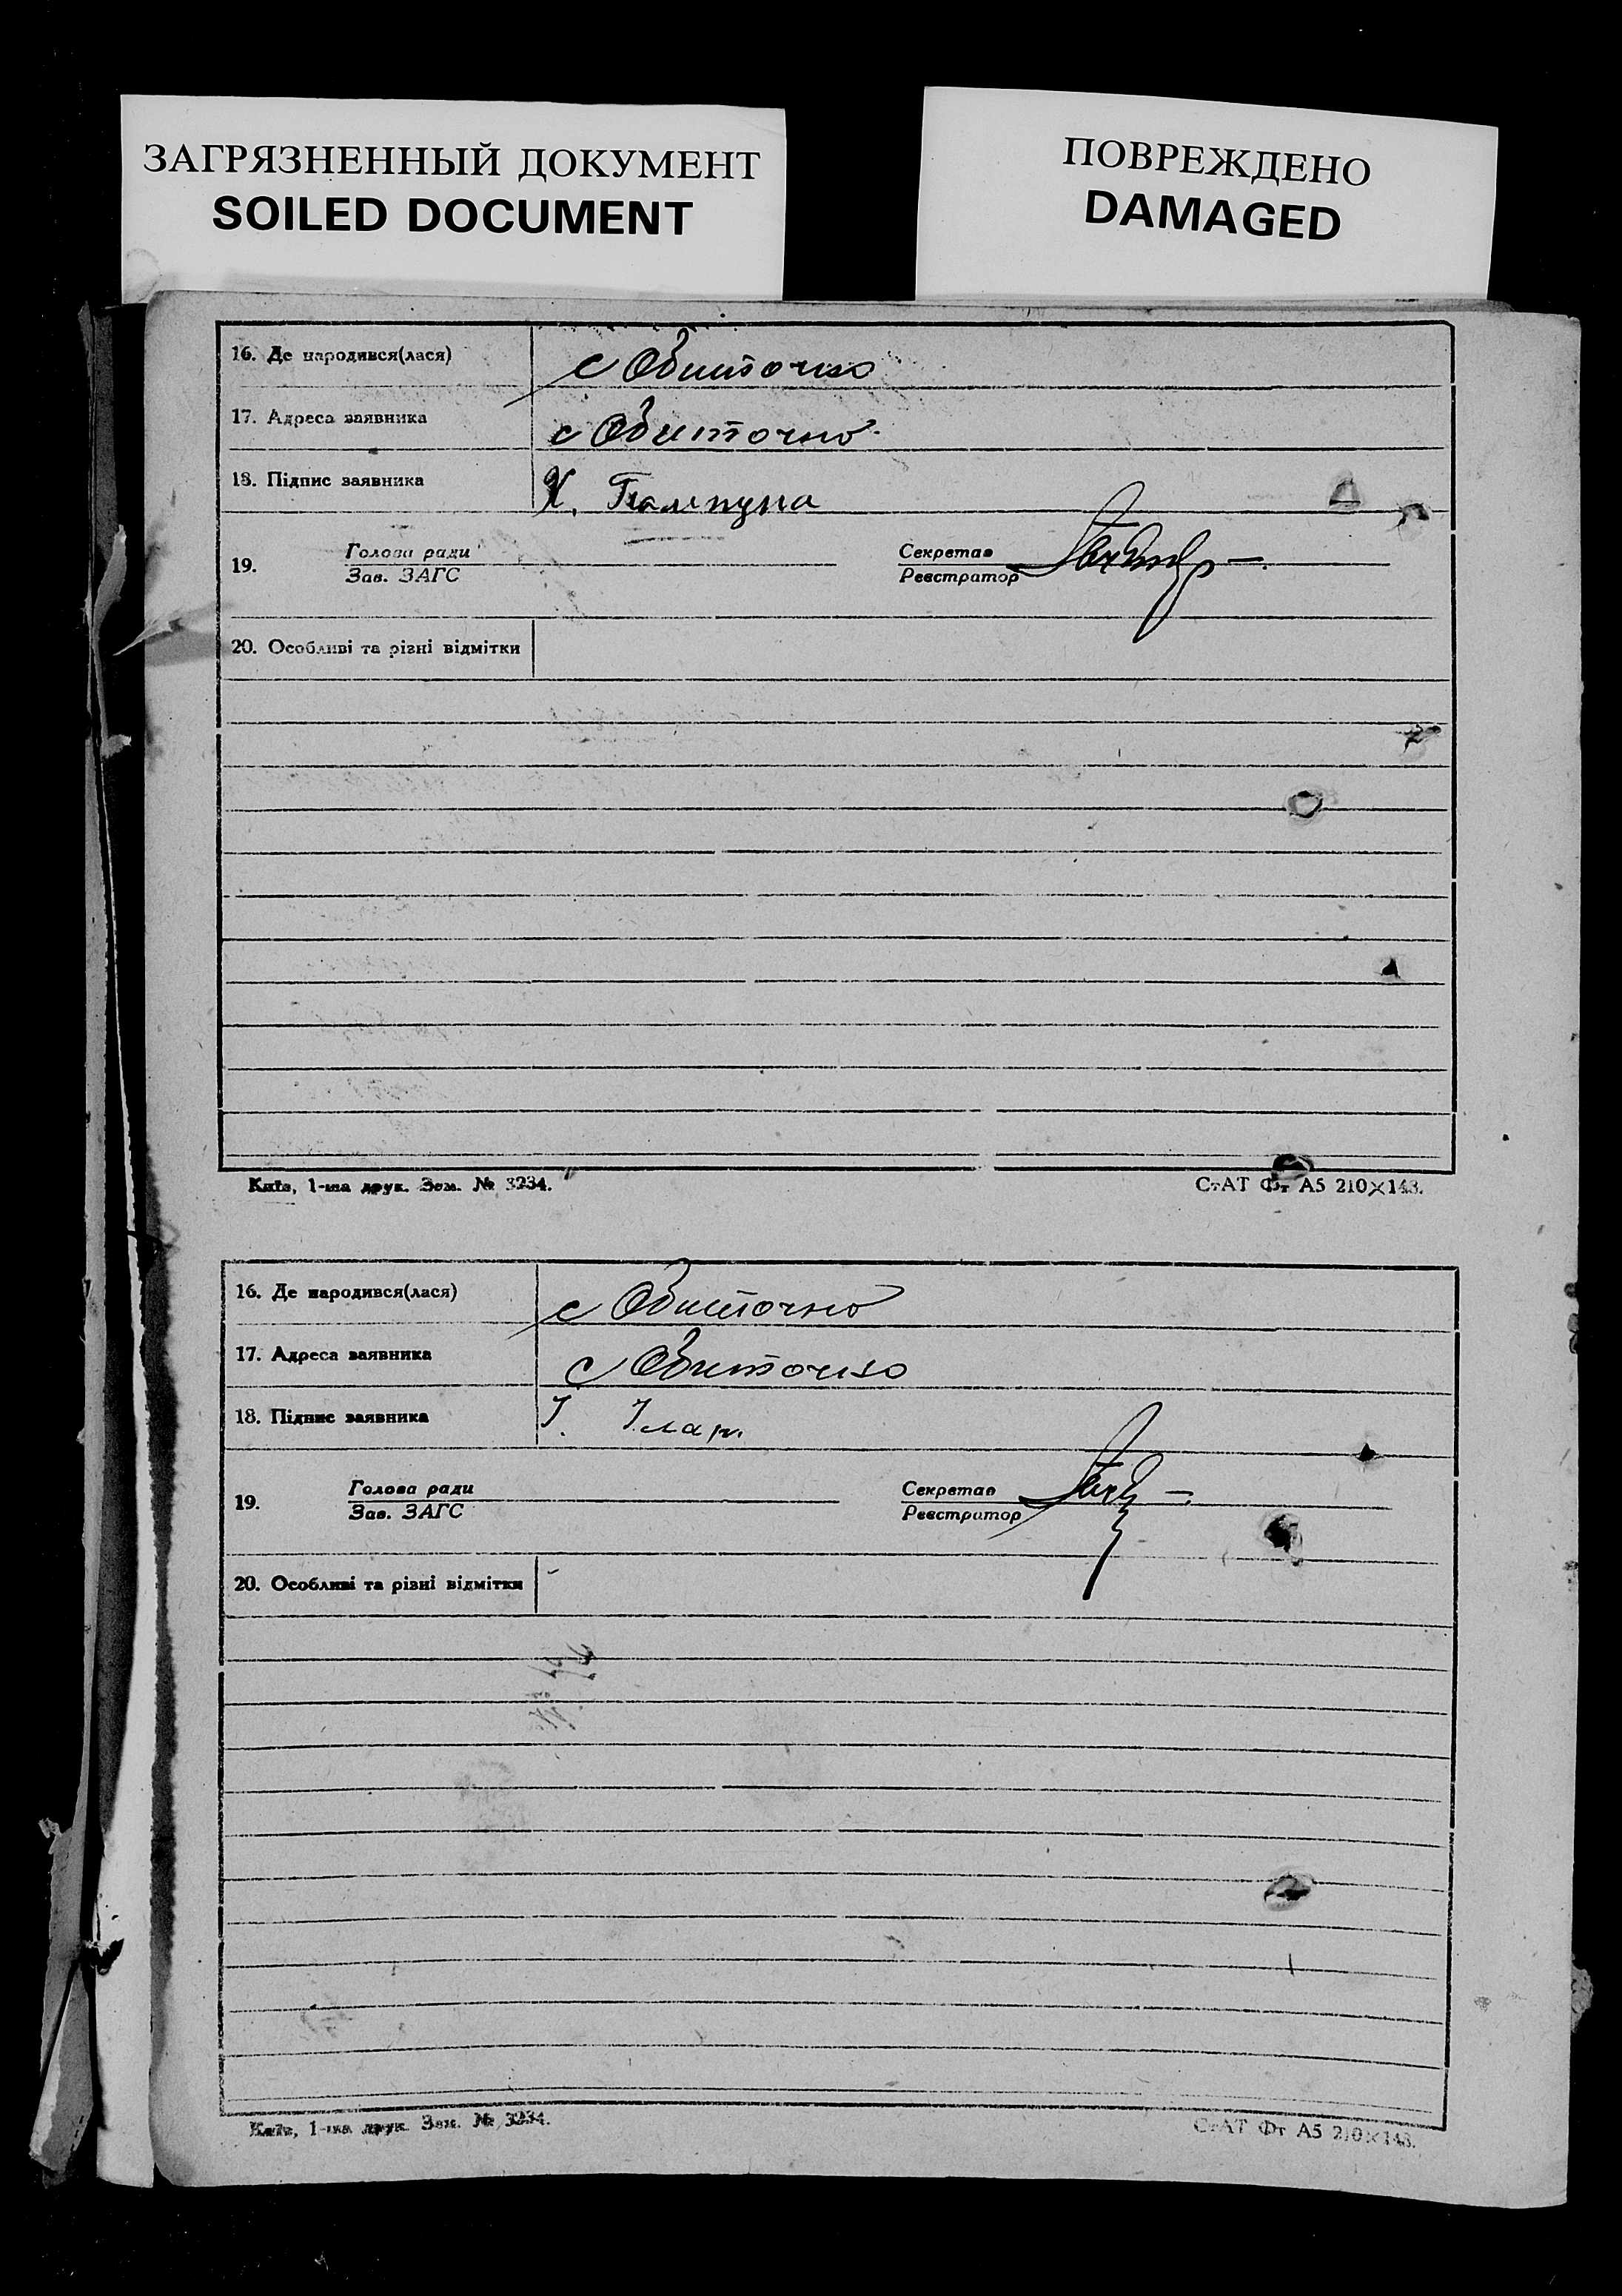 ЗАГРЯЗНЕННЫЙ ДОКУМЕНТ
SOILED DOCUMENT
ПОВРЕЖДЕНО
DAMAGED
16. Де народився(лася) с Обиточно
17. Адреса заявника с Обиточно
18. Підпис заявника
19. Голова ради
Зав. ЗАГС
Секретар
Реєстратор
20. Особливі та різні відмітки
Київ, 1-ша друк. Зам. № 3234.
СтАТ Фт А5 210×143.
16. Де народився(лася) с Обиточно
17. Адреса заявника с Обиточно
18. Підпис заявника
19. Голова ради
Зав. ЗАГС
Секретар
Реєстратор
20. Особливі та різні відмітки
Київ, 1-ша друк. Зам. № 3234.
СтАТ Фт А5 210×143.